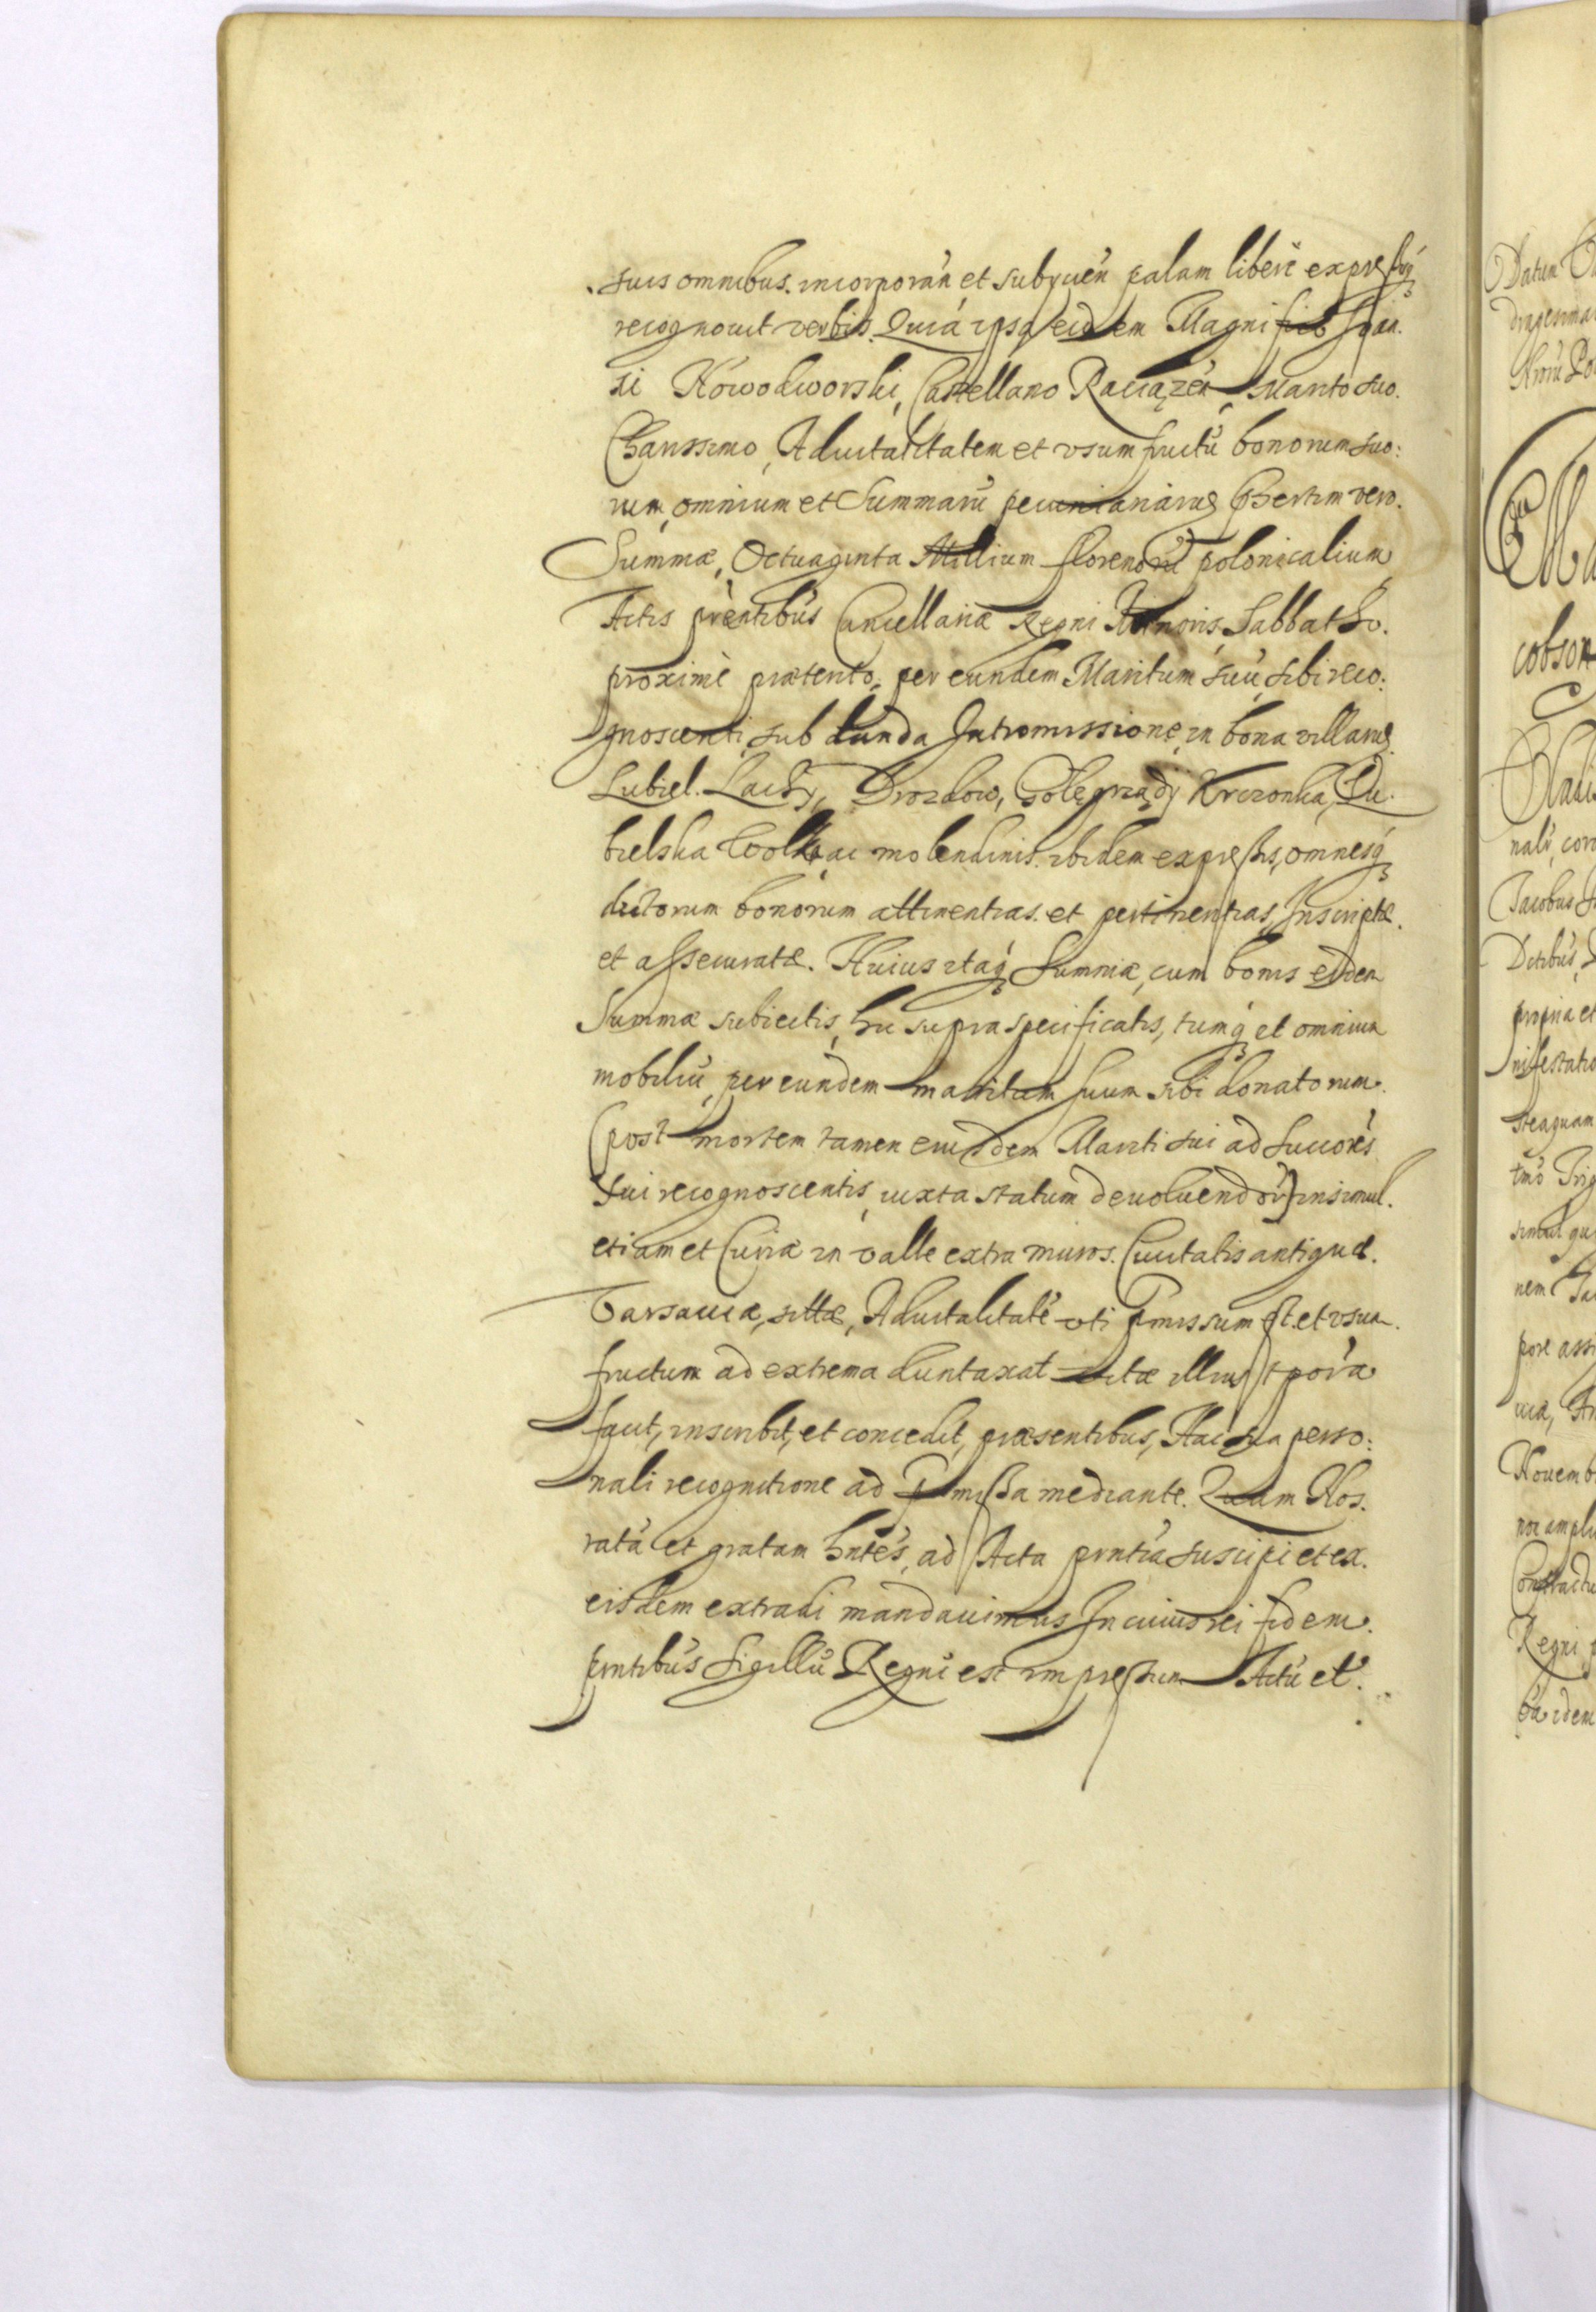 suis omnibus incorporan̄ et subyuen̄ palam libere expressisq́
recognouit verbis. Quia ipsa eidem Magnifico Joan-
ni Nowodworski, Castellano Raciązen̄, Marito suo
Charissimo, Aduitalitatem et vsumfructū bonorum suo:
rum omnium et Summarū pecuniariarum sertim vero
Summæ, Octuaginta Millium florenorū polonicalium
Actis prentibus Cancellariæ Regni Minoris, Sabbatho
proximè præterito, per eundem Maritum suū, sibi reco:
gnoscenti, sub danda Intromissione, in bona villarum
Lubiel. Lachy, Drozdow, Golęgrządy Krczonka, Lu-
bielska Wolka, ac molendinis ibidem expressis, omnesq́
dictorum bonorum attinentias et pertinentias, Inscriptæ
et assecuratæ. Huius itaq́ Summæ, cum bonis eidem
Summæ subiectis, hic supra specificatis, tumq́ et omnium
mobiliū, per eundem maritum suum sibi donatorum
(post mortem tamen eiusdem Mariti sui ad Succores
sui recognoscentis, iuxta statum deuoluendor̄) insimul
etiam et Curiæ in valle extra muros Ciuitalis antiquæ
Varsauiæ, sittæ, Aduitalitatē vti pmissum st. et vsum
fructum ad extrema duntaxat vitæ illius tpora
facit, inscribit, et concedit, præsentibus, Hac sua perso:
nali recognitione ad pmissa mediante. Quam Nos
ratā et gratam hntes, ad Acta pntia suscipi et ex
eisdem extradi mandauimus In cuius rei fidem
pntibus Sigillū Regni est impressum Actū et
Datum
cobson
Jacobus
propria et
steaquam
nem
pore
Nouemb
Regni